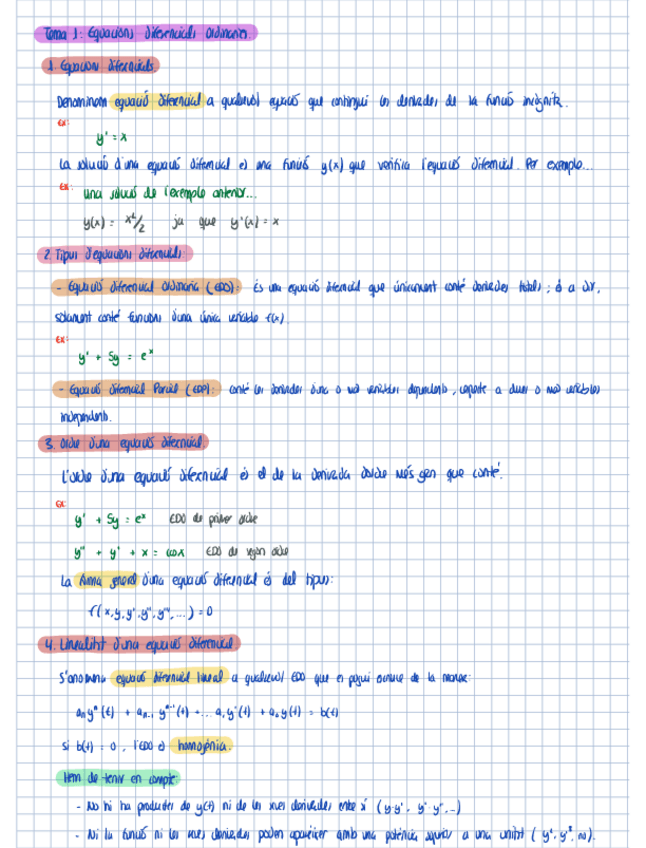 Tema 1: Equacions diferencials Ordinàries
1. Equacions diferencials
Denominem equació diferencial a qualsevol equació que contingui les derivades de la funció incògnita.
ex:
y' = x
La solució d'una equació diferencial és una funció y(x) que verifica l'equació diferencial. Per exemple...
ex:
una solució de l'exemple anterior...
y(x) = x²/2 ja que y'(x) = x
2. Tipus d'equacions diferencials:
- Equació diferencial Ordinària (EDO): És una equació diferencial que únicament conté derivades totals; és a dir,
solament conté funcions d'una única variable f(x)
ex:
y' + 5y = eˣ
- Equació diferencial Parcial (EDP): conté les derivades d'una o més variables dependents, respecte a dues o més variables
independents.
3. Ordre d'una equació diferencial
L'ordre d'una equació diferencial és el de la derivada d'ordre més gran que conté.
ex:
y' + 5y = eˣ EDO de primer ordre
y'' + y' + x = cosx EDO de segon ordre
La forma general d'una equació diferencial és del tipus:
f(x,y,y',y'',y''',...) = 0
4. Linealitat d'una equació diferencial
S'anomena equació diferencial lineal a qualsevol EDO que es pugui escriure de la manera:
aₙyⁿ(t) + aₙ₋₁ yⁿ⁻¹(t) + ... a₁y'(t) + a₀y(t) = b(t)
si b(t) = 0, l'EDO és homogènia.
Hem de tenir en compte:
- No hi ha productes de y(t) ni de les seves derivades entre sí (y·y', y'·y'',...)
- Ni la funció ni les seves derivades poden aparèixer amb una potència superior a una unitat (y², y'³, no).